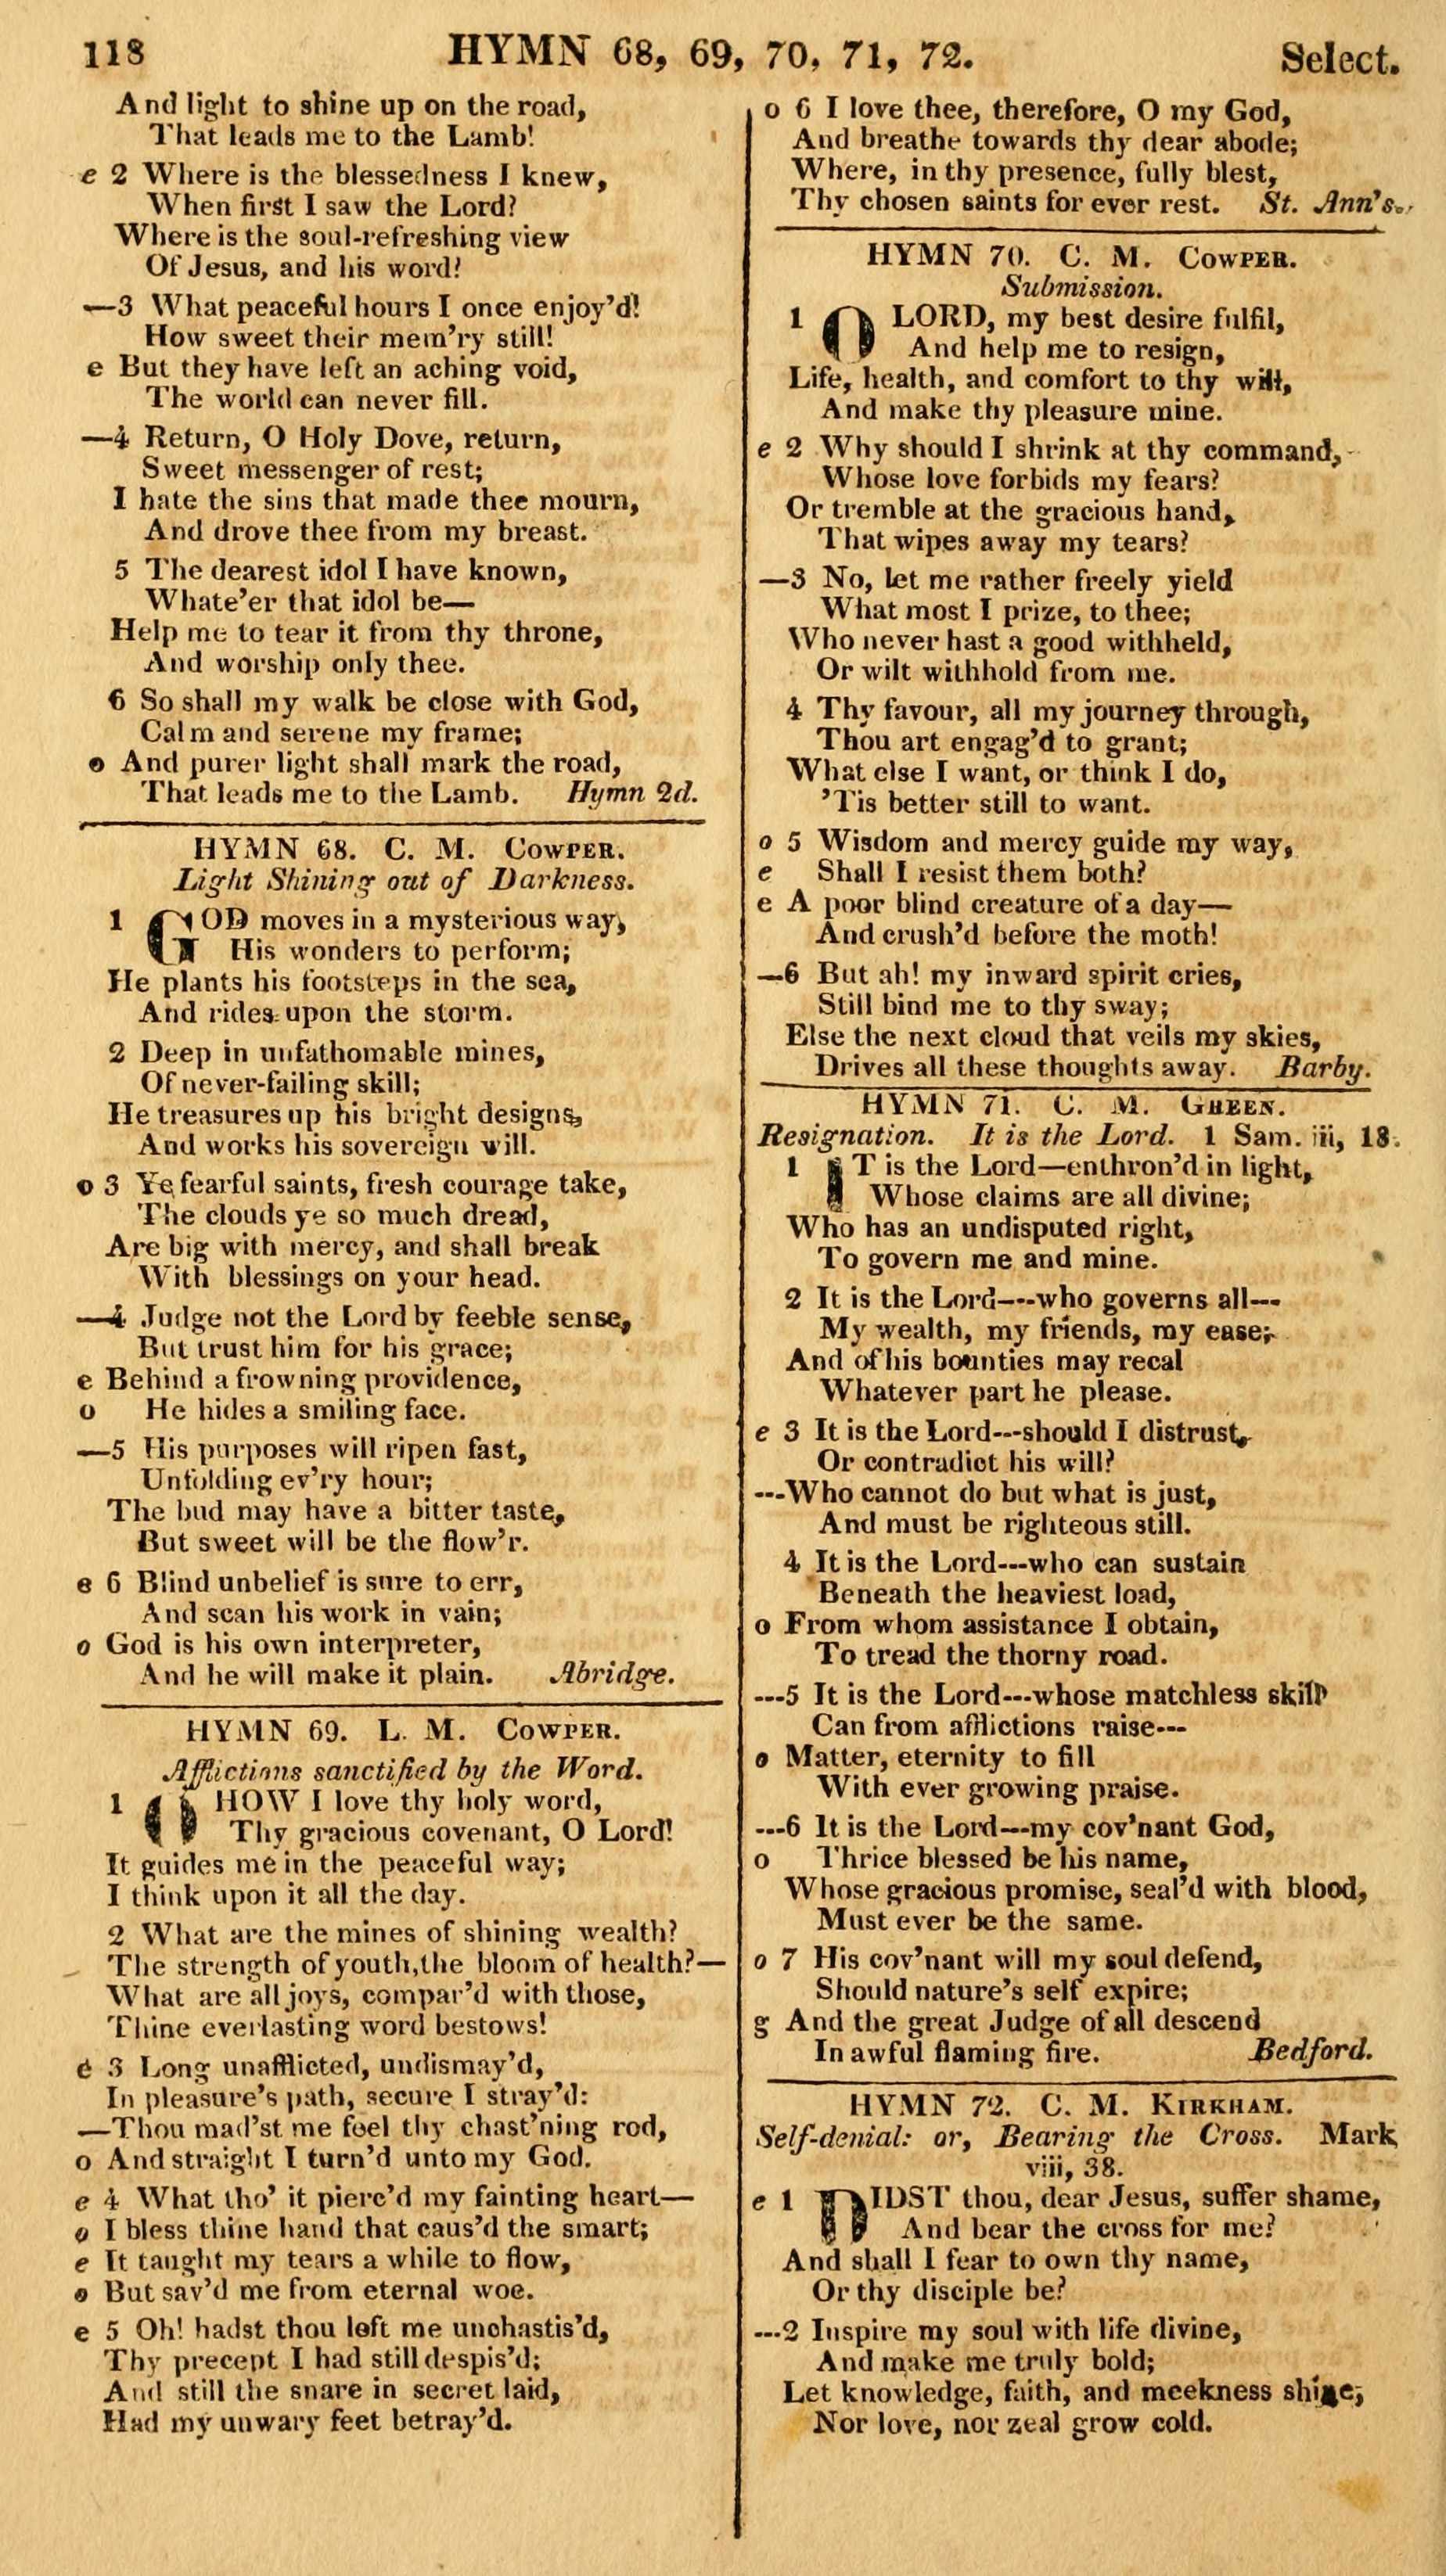 118 HYMN 68, 69, 70, 71, 72. Select.
And light to shine up on the road,
That leads me to the Lamb!
e 2 Where is the blessedness I knew,
When first I saw the Lord?
Where is the soul-refreshing view
Of Jesus, and his word!
—3 What peaceful hours I once enjoy'd!
How sweet their mem'ry still!
e But they have left an aching void,
The world can never fill.
—4 Return, O Holy Dove, return,
Sweet messenger of rest;
I hate the sins that made thee mourn,
And drove thee from my breast.
5 The dearest idol I have known,
Whate'er that idol be—
Help me to tear it from thy throne,
And worship only thee.
6 So shall my walk be close with God,
Calm and serene my frame;
o And purer light shall mark the road,
That leads me to the Lamb. Hymn 2d.
HYMN 68. C. M. COWPER.
Light Shining out of Darkness.
1 GOD moves in a mysterious way,
His wonders to perform;
He plants his footsteps in the sea,
And rides upon the storm.
2 Deep in unfathomable mines,
Of never-failing skill;
He treasures up his bright designs,
And works his sovereign will.
o 3 Ye fearful saints, fresh courage take,
The clouds ye so much dread,
Are big with mercy, and shall break
With blessings on your head.
—4 Judge not the Lord by feeble sense,
But trust him for his grace;
e Behind a frowning providence,
o He hides a smiling face.
—5 His purposes will ripen fast,
Unfolding ev'ry hour;
The bud may have a bitter taste,
But sweet will be the flow'r.
e 6 Blind unbelief is sure to err,
And scan his work in vain;
o God is his own interpreter,
And he will make it plain. Abridge.
HYMN 69. L. M. COWPER.
Afflictions sanctified by the Word.
1 O HOW I love thy holy word,
Thy gracious covenant, O Lord!
It guides me in the peaceful way;
I think upon it all the day.
2 What are the mines of shining wealth?
The strength of youth,the bloom of health?—
What are all joys, compar'd with those,
Thine everlasting word bestows!
e 3 Long unafflicted, undismay'd,
In pleasure's path, secure I stray'd:
—Thou mad'st me feel thy chast'ning rod,
o And straight I turn'd unto my God.
e 4 What tho' it pierc'd my fainting heart—
o I bless thine hand that caus'd the smart;
e It taught my tears a while to flow,
o But sav'd me from eternal woe.
e 5 Oh! hadst thou left me unchastis'd,
Thy precept I had still despis'd;
And still the snare in secret laid,
Had my unwary feet betray'd.
o 6 I love thee, therefore, O my God,
And breathe towards thy dear abode;
Where, in thy presence, fully blest,
Thy chosen saints for ever rest. St. Ann's.
HYMN 70. C. M. COWPER.
Submission.
1 O LORD, my best desire fulfil,
And help me to resign,
Life, health, and comfort to thy will,
And make thy pleasure mine.
e 2 Why should I shrink at thy command,
Whose love forbids my fears?
Or tremble at the gracious hand,
That wipes away my tears?
—3 No, let me rather freely yield
What most I prize, to thee;
Who never hast a good withheld,
Or wilt withhold from me.
4 Thy favour, all my journey through,
Thou art engag'd to grant;
What else I want, or think I do,
'Tis better still to want.
o 5 Wisdom and mercy guide my way,
e Shall I resist them both?
e A poor blind creature of a day—
And crush'd before the moth!
—6 But ah! my inward spirit cries,
Still bind me to thy sway;
Else the next cloud that veils my skies,
Drives all these thoughts away. Barby.
HYMN 71. C. M. GREEN.
Resignation. It is the Lord. 1 Sam. iii, 18.
1 IT is the Lord—enthron'd in light,
Whose claims are all divine;
Who has an undisputed right,
To govern me and mine.
2 It is the Lord---who governs all---
My wealth, my friends, my ease;
And of his bounties may recal
Whatever part he please.
e 3 It is the Lord---should I distrust,
Or contradict his will?
---Who cannot do but what is just,
And must be righteous still.
4 It is the Lord---who can sustain
Beneath the heaviest load,
o From whom assistance I obtain,
To tread the thorny road.
---5 It is the Lord---whose matchless skill
Can from afflictions raise---
o Matter, eternity to fill
With ever growing praise.
---6 It is the Lord---my cov'nant God,
o Thrice blessed be his name,
Whose gracious promise, seal'd with blood,
Must ever be the same.
o 7 His cov'nant will my soul defend,
Should nature's self expire;
g And the great Judge of all descend
In awful flaming fire. Bedford.
HYMN 72. C. M. KIRKHAM.
Self-denial: or, Bearing the Cross. Mark
viii, 38.
e 1 DIDST thou, dear Jesus, suffer shame,
And bear the cross for me?
And shall I fear to own thy name,
Or thy disciple be?
---2 Inspire my soul with life divine,
And make me truly bold;
Let knowledge, faith, and meekness shine,
Nor love, nor zeal grow cold.